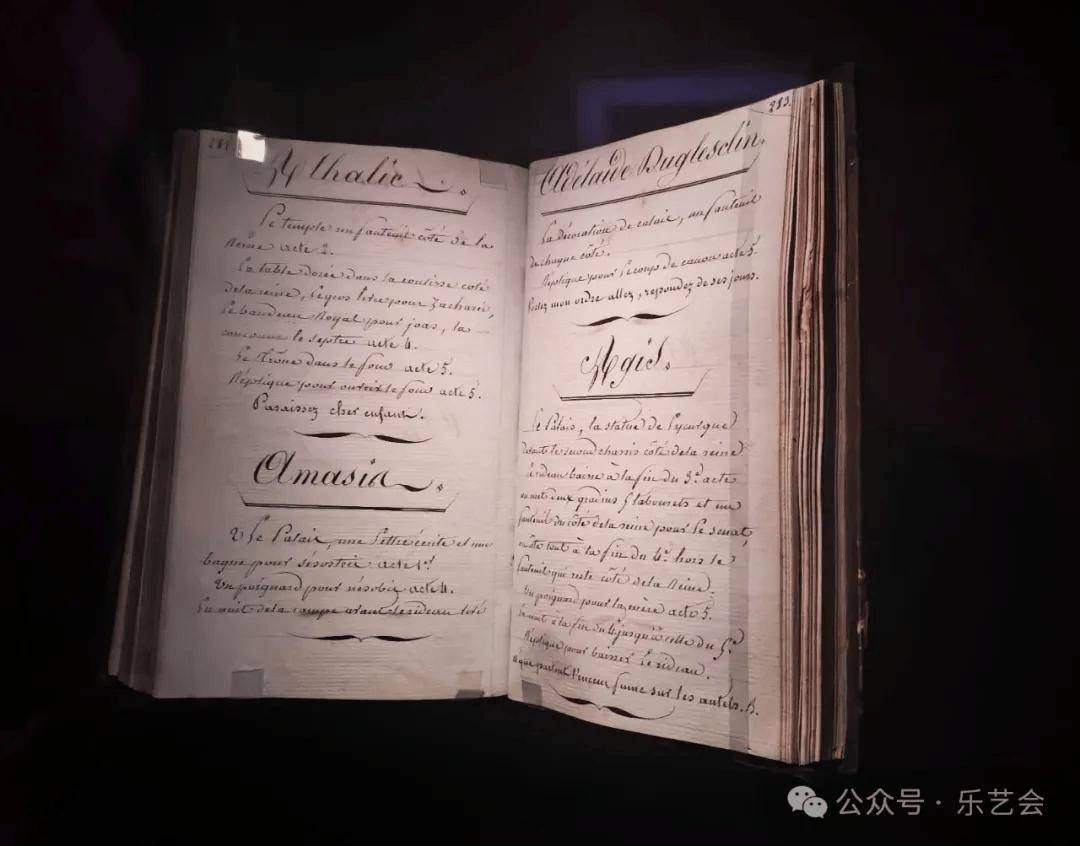 Athalie.
Le temple un fauteuil côté de la
Reine acte 2.
La table dorée dans la coulisse coté
de la reine, le gros livre pour Zacharie,
le bandeau Royal pour joas, la
couronne le septre acte 4.
Le trône dans le fond acte 5.
Réplique pour ouvrir le fond acte 5.
Paraissez cher enfant.
Amasis.
Le Palais, une lettre écrite et une
bague pour sésostris acte 1er
Un poignard pour acte 4.
La nuit de la rampe avant le rideau
283.
Adélaïde Duglesclin.
La décoration de palais, un fauteuil
de chaque côté.
Réplique pour le coup de canon acte 5.
Portez mon ordre allez, repondez de ses jours.
Agis.
Le Palais, la statue de Lycurgue
devant le second chassis côté de la reine
le rideau baisse à la fin du 3e. acte
on met deux gradins 5 tabourets et un
fauteuil du côté de la reine pour le senat,
on ôte tout à la fin du 4e. hors le
fauteuil qui reste côté de la Reine.
Un poignard pour la mère acte 5.
la nuit à la fin du 4e jusqu'à celle du 5e.
Réplique pour baisser le rideau.
et que partout l'encens fume sur les autels.
公众号·乐艺会